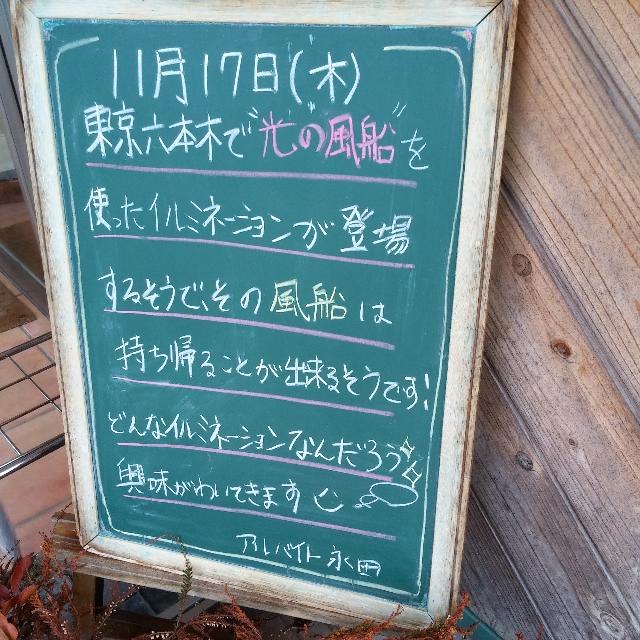 11月17日(木)
東京六本木で"光の風船"を
使ったイルミネーションが登場
するそうで、その風船は
持ち帰ることが出来るそうです!
どんなイルミネーションなんだろう
興味がわいてきます
アルバイト永田